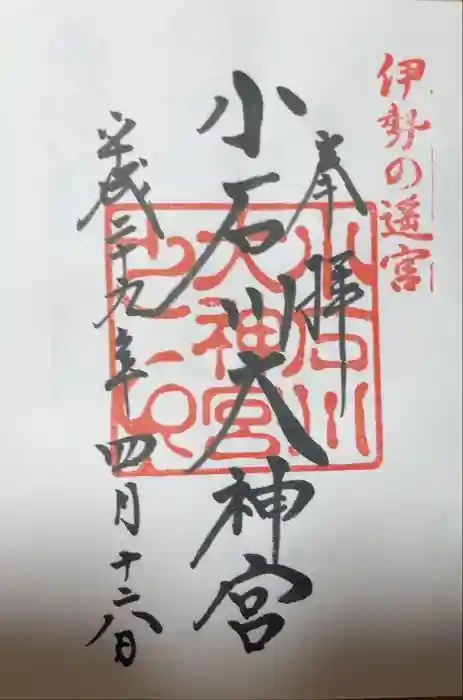 伊勢の遥宮
奉拝
小石川大神宮
平成二十九年四月十六日
小石川
大神宮